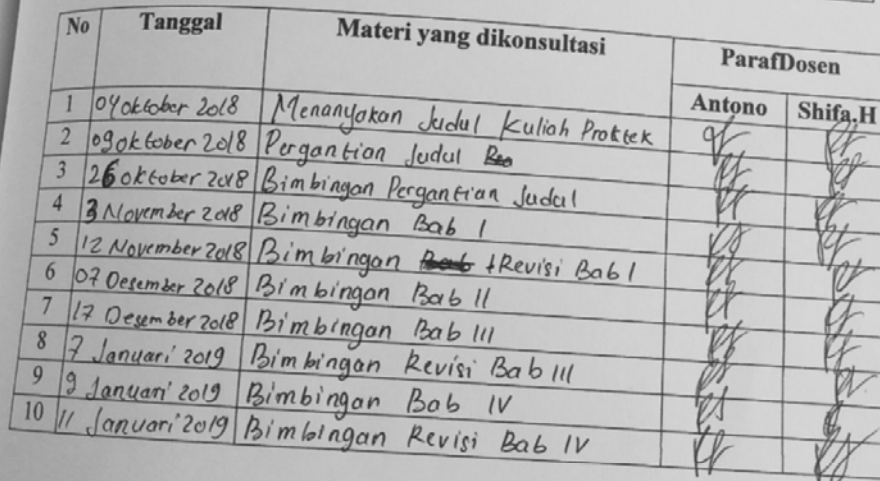 No Tanggal Materi yang dikonsultasi ParafDosen
Antono Shifa,H
1 04 oktober 2018 Menanyakan Judul Kuliah Praktek
2 09 oktober 2018 Pergantian Judul
3 26 oktober 2018 Bimbingan Pergantian Judul
4 3 November 2018 Bimbingan Bab I
5 12 November 2018 Bimbingan +Revisi Bab I
6 07 Desember 2018 Bimbingan Bab II
7 17 Desember 2018 Bimbingan Bab III
8 7 Januari 2019 Bimbingan Revisi Bab III
9 9 Januari 2019 Bimbingan Bab IV
10 11 Januari 2019 Bimbingan Revisi Bab IV